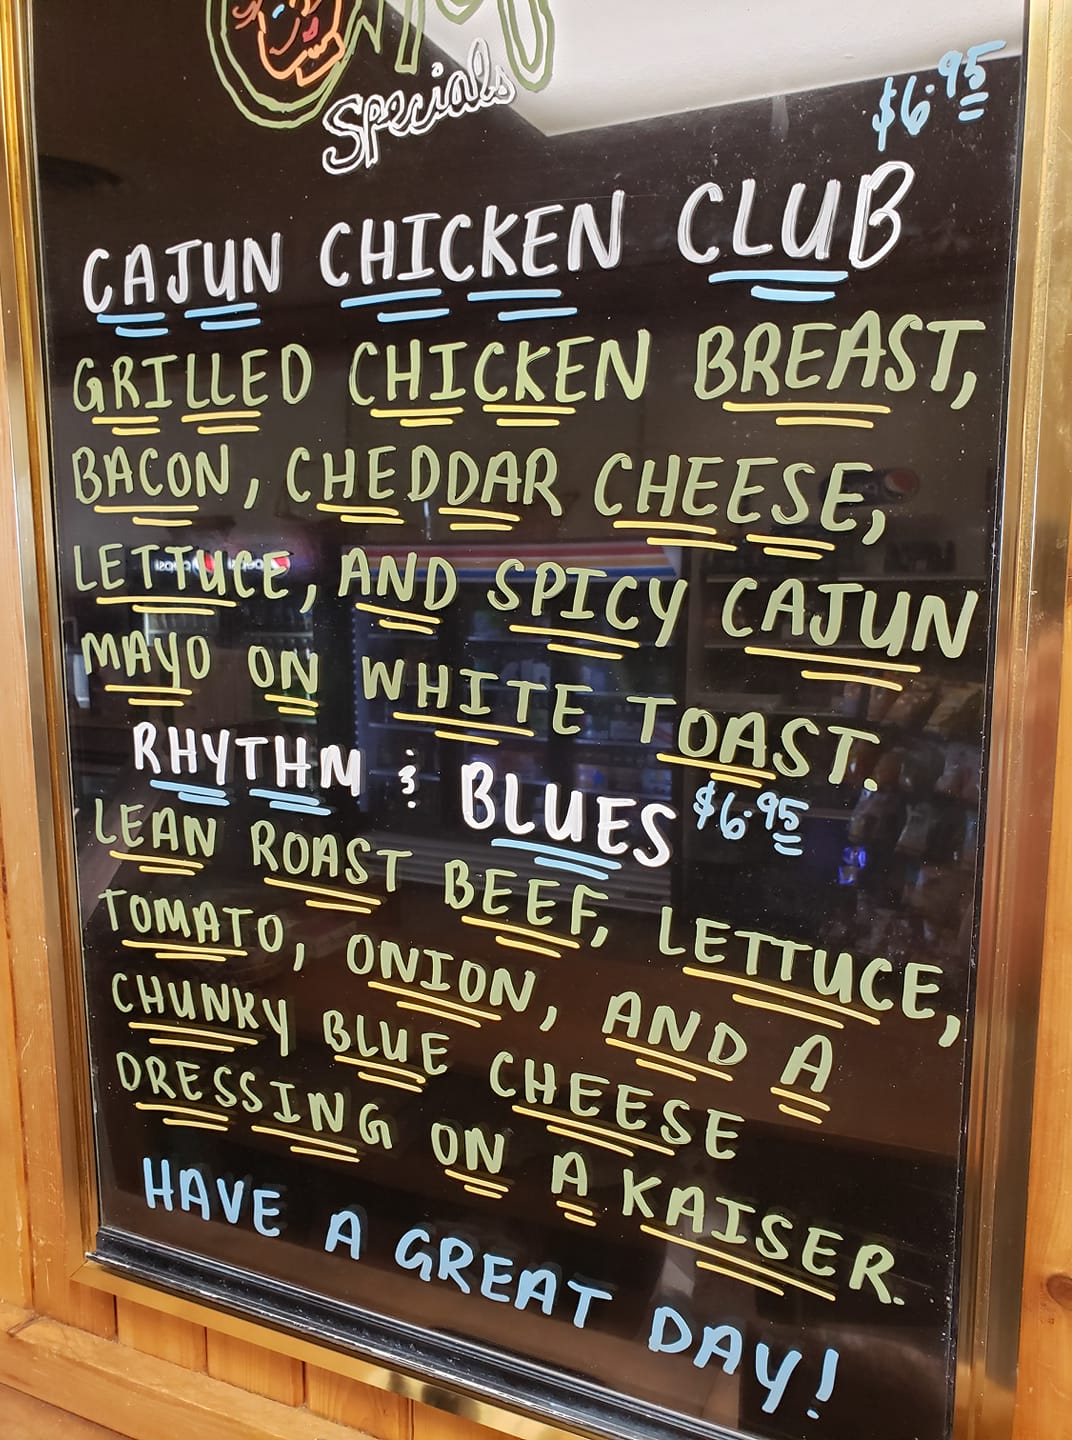 Specials
$6.95
CAJUN CHICKEN CLUB
GRILLED CHICKEN BREAST,
BACON, CHEDDAR CHEESE,
LETTUCE, AND SPICY CAJUN
MAYO ON WHITE TOAST.
RHYTHM & BLUES $6.95
LEAN ROAST BEEF, LETTUCE,
TOMATO, ONION, AND A
CHUNKY BLUE CHEESE
DRESSING ON A KAISER.
HAVE A GREAT DAY!